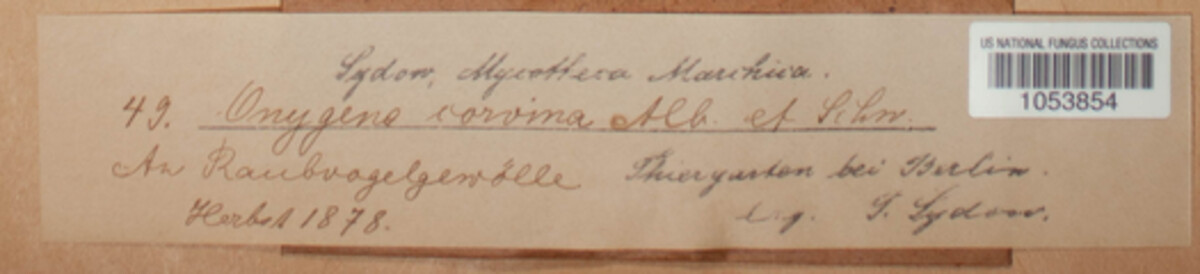 Sydow, Mycotheca Marchica.
49. Onygena corvina Alb. et Schw.
An Raubvogelgewölle Thiergarten bei Berlin.
Herbst 1878. leg. P. Sydow.
US NATIONAL FUNGUS COLLECTIONS
1053854